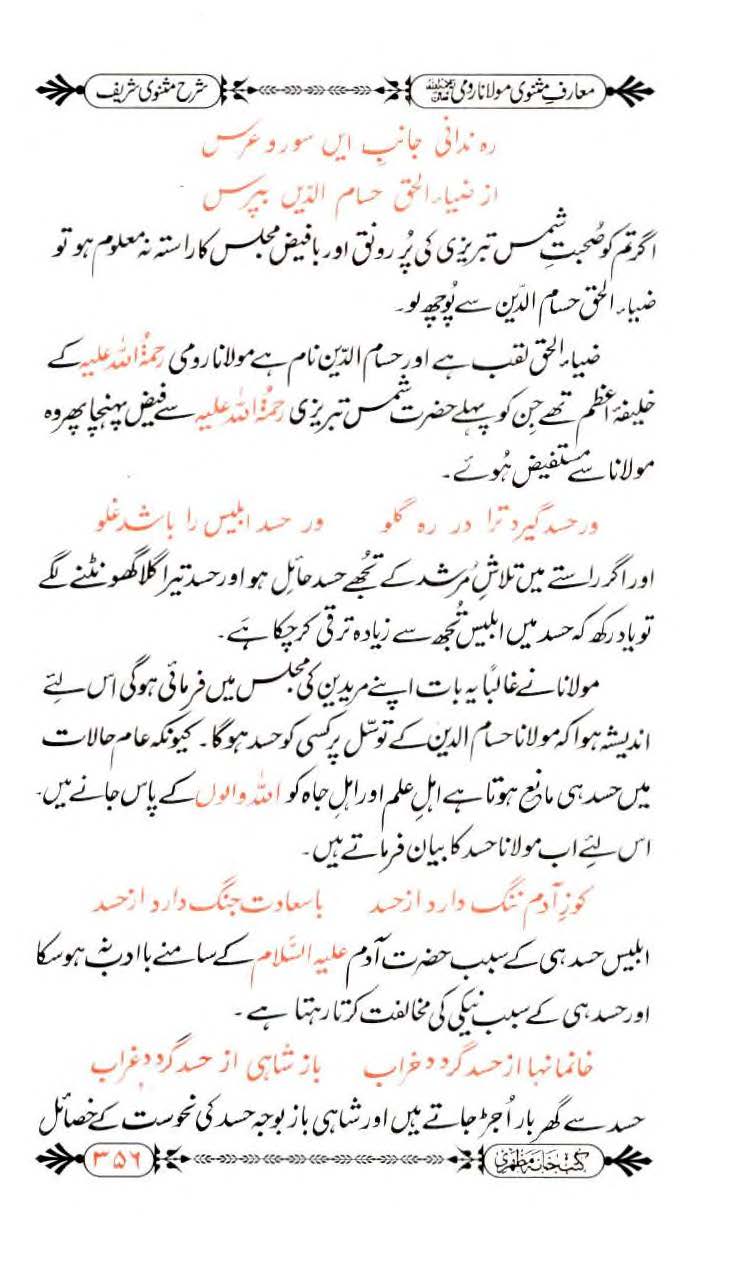 معارفِ مثنوی مولانا رومی رحمۃاللہ علیہ شرح مثنوی شریف
رہ ندانی جانبِ ایں سور و عرس
از ضیاء الحق حسام الدّیں بپرس
اگر تم کو صُحبتِ شمس تبریزی کی پُر رونق اور بافیض مجلس کا راستہ نہ معلوم ہو تو
ضیاء الحق حسام الدّین سے پُوچھ لو۔
ضیاء الحق لقب ہے اور حسام الدّین نام ہے مولانا رومی رحمۃُ اللہ علیہ کے
خلیفۂ اعظم تھے جِن کو پہلے حضرت شمس تبریزی رحمۃُ اللہ علیہ سے فیض پہنچا پھر وہ
مولانا سے مستفیض ہُوئے۔
ور حسد گیرد ترا در رہ گلو ور حسد ابلیس را باشد غلو
اور اگر راستے میں تلاشِ مُرشد کے تجھے حسد حائل ہو اور حسد تیرا گلا گھونٹنے لگے
تو یاد رکھ کہ حسد میں ابلیس تُجھ سے زیادہ ترقی کر چکا ہَے۔
مولانا نے غالباً یہ بات اپنے مریدین کی مجلس میں فرمائی ہوگی اس لئے
اندیشہ ہوا کہ مولانا حسام الدین کے توسّل پر کسی کو حسد ہوگا۔ کیونکہ عام حالات
میں حسد ہی مانع ہوتا ہے اہلِ علم اور اہلِ جاہ کو اللہ والوں کے پاس جانے میں۔
اس لئے اب مولانا حسد کا بیان فرماتے ہیں۔
کوز آدم ننگ دارد از حسد باسعادت جنگ دارد از حسد
ابلیس حسد ہی کے سبب حضرت آدم علیہ السَّلام کے سامنے باادب نہ ہوسکا
اور حسد ہی کے سبب نیکی کی مخالفت کرتا رہتا ہے۔
خانمانہا از حسد گردد خراب باز شاہی از حسد گردد غراب
حسد سے گھر بار اُجڑ جاتے ہیں اور شاہی باز بوجہ حسد کی نحوست کے خصائل
کتب خانہ مظہری ۳۵۶